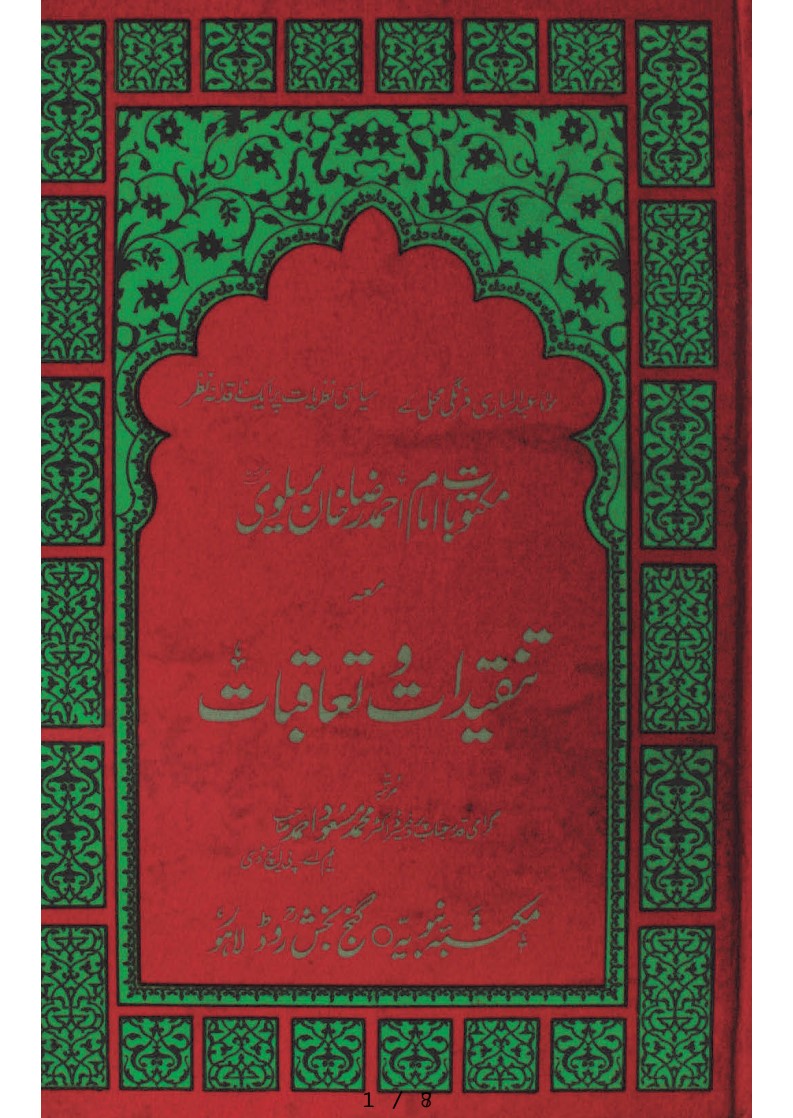 مولانا عبدالباری فرنگی محلی کے سیاسی نظریات پر ایک ناقدانہ نظر
مکتوبات امام احمد رضا خان بریلوی
معہ
تنقیدات و تعاقبات
مرتبہ
گرامی قدر جناب پروفیسر ڈاکٹر محمد مسعود احمد صاحب
ایم اے پی ایچ ڈی
مکتبہ نبویہ ○ گنج بخش روڈ لاہور
1 / 8